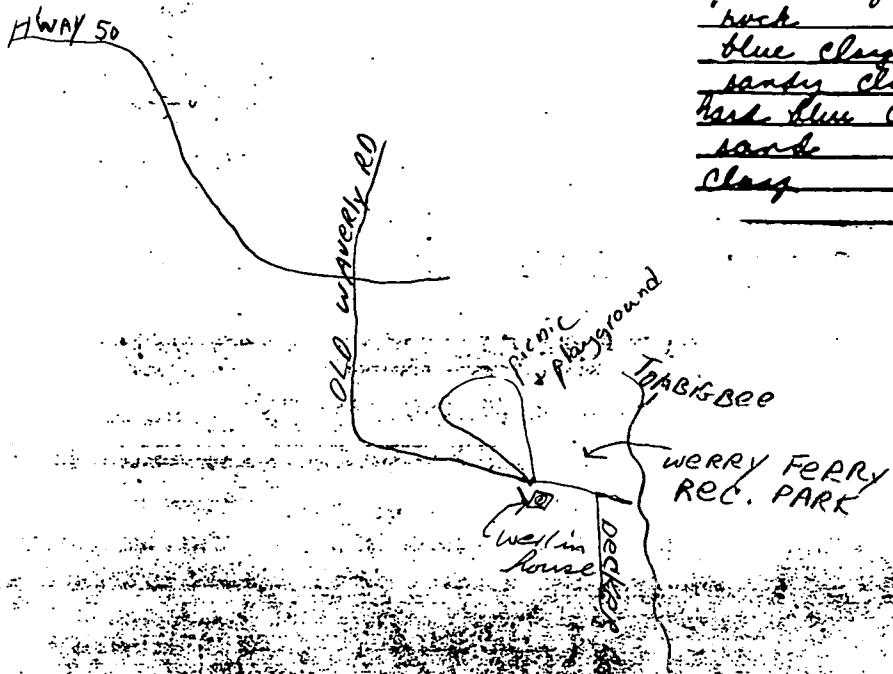 HWAY 50
rock
blue clay
sandy cl
hard blue c
sand
clay
OLD WAVERLY RD
picnic
& playground
TOMBIGBEE
WERRY FERRY
REC. PARK
well in
house